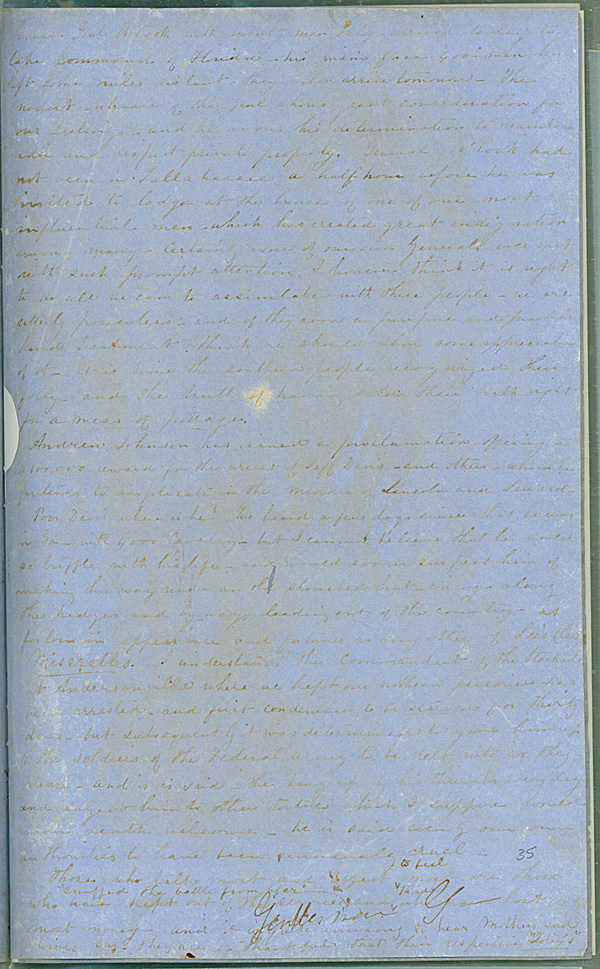 Genl McCook with twenty men only arrived to day to
take command of Florida - his main force 400 men he
left some miles distant - they will arrive tomorrow - The
modest entrance of the Genl shows, great consideration for
our feelings - and he avows his determination to
and respect private property. General McCook had
not been in Tallahassee a half hour before he was
invited to lodge at the house of one of our most
influential men - which has created great indignation
among many - Certainly none of our own Generals ever met
with such prompt attention. I however think it is right
to do all we can to assimilate with these people - we are
utterly powerless - and if they avow a purpose and
treatment I think we should show some appreciation
of it - It is time the southern people recognized their
folly - and the truth of having sold their birth right
for a mess of pottage.
Andrew Johnson has issued a proclamation offering a
$100,000 reward for the arrest of Jeff Davis - and others - whom he
pretends to implicate in the murder of Lincoln and Seward -
Poor Davis where is he? We heard a few days since that he was
in Ga - with 4000 Cavalry - but I cannot believe that he would
so trifle with his life - and would sooner suspect him of
making his way under an old slouched hat along
the hedges and by ways leading out of the country - as
forlorn in appearance and fortunes as any other of Lee's
Miserables. I understand the Commandant of the stockade
at Andersonville where we kept our northern prisoners has
been arrested - and first condemned to be for thirty
days - but subsequently it was determined to give him up
to the soldiers of the Federal army to be dealt with as they
please - and it is said - they hang up by his thumbs everyday
and subject him to other torture which I suppose would
make death welcome - he is said even by our own
authorities to have been cruel -
35
Those who talk most and affect to feel most are those
who have kept out of the service, and
sniffed the battle from afar
Gentlemen
most money - and it is quite amusing to hear Mothers and
wives say they are so thankful that their respective "Loveys"